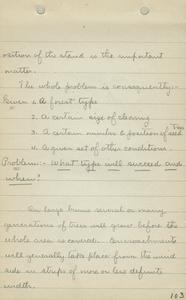 osition of the stand is the important
matter.
The whole problem is consequently:-
Given 1. A forest type
2. A certain size of clearing
3. A certain number & position of seed Trees
4. A given set of other conditions.
Problem:- What type will succeed and
when?
On large burns several or many
generations of trees will grow before the
whole area is covered. Encroachments
will generally take place from the wind
side in strips of more or less definite
width.
103